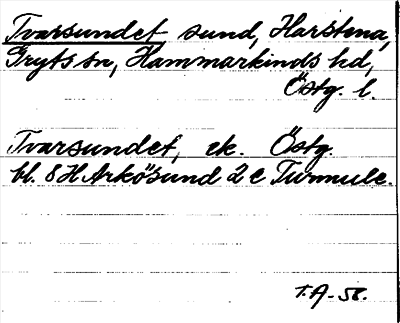 Tvarsundet sund, Harstena,
Gryts sn, Hammarkinds hd,
Östg. l.
Tvarsundet, ek. Östg.
bl. 8H Arkösund 2 c Turmule.
T.A-58.